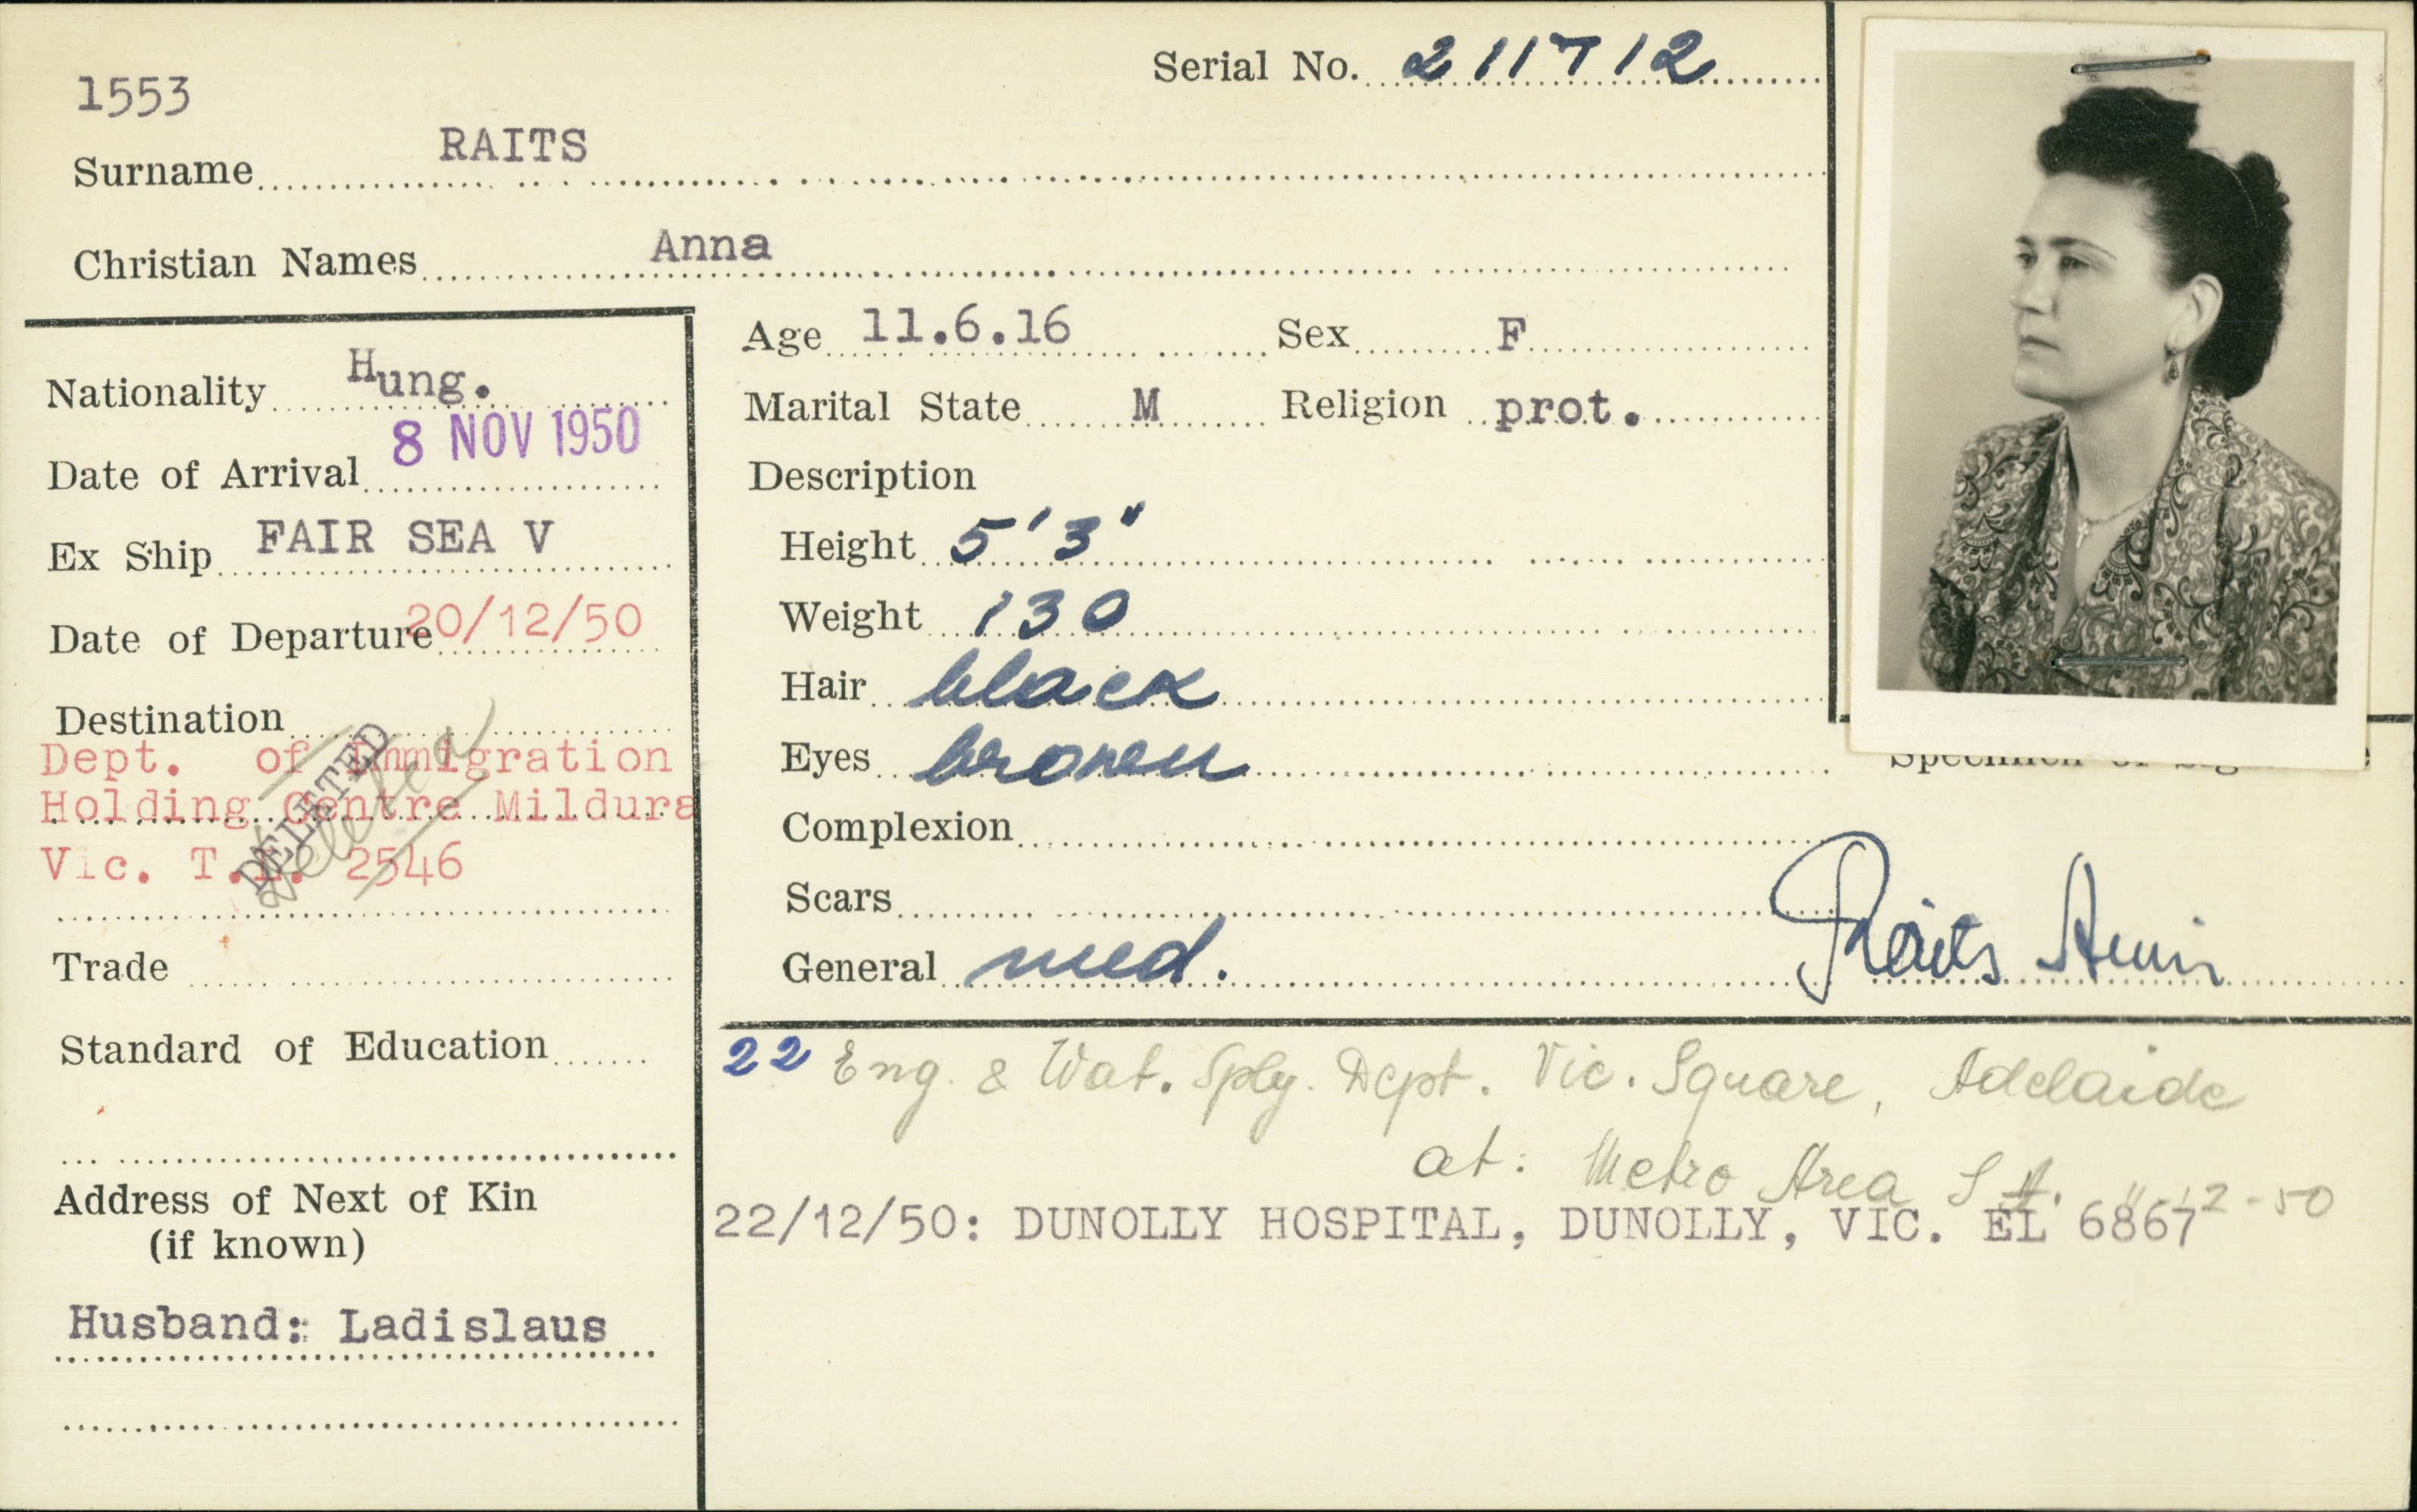 Serial No. 211712
1553
Surname RAITS
Christian Names Anna
Nationality Hung.
Date of Arrival 8 NOV 1950
Ex Ship FAIR SEA V
Date of Departure 20/12/50
Destination
Dept. of Immigration
Holding Centre Mildura
Vic. T.L. 2546
DELETED
Deleted
Trade
Standard of Education
Address of Next of Kin
(if known)
Husband: Ladislaus
Age 11.6.16 Sex F
Marital State M Religion prot.
Description
Height 5'3"
Weight 130
Hair black
Eyes brown
Complexion
Scars
General med.
Specimen of
Raits
22 Eng. & Wat. Sply. Dept. Vic. Square, Adelaide
at: Metro Area S A. 11-12-50
22/12/50: DUNOLLY HOSPITAL, DUNOLLY, VIC. EL 6867